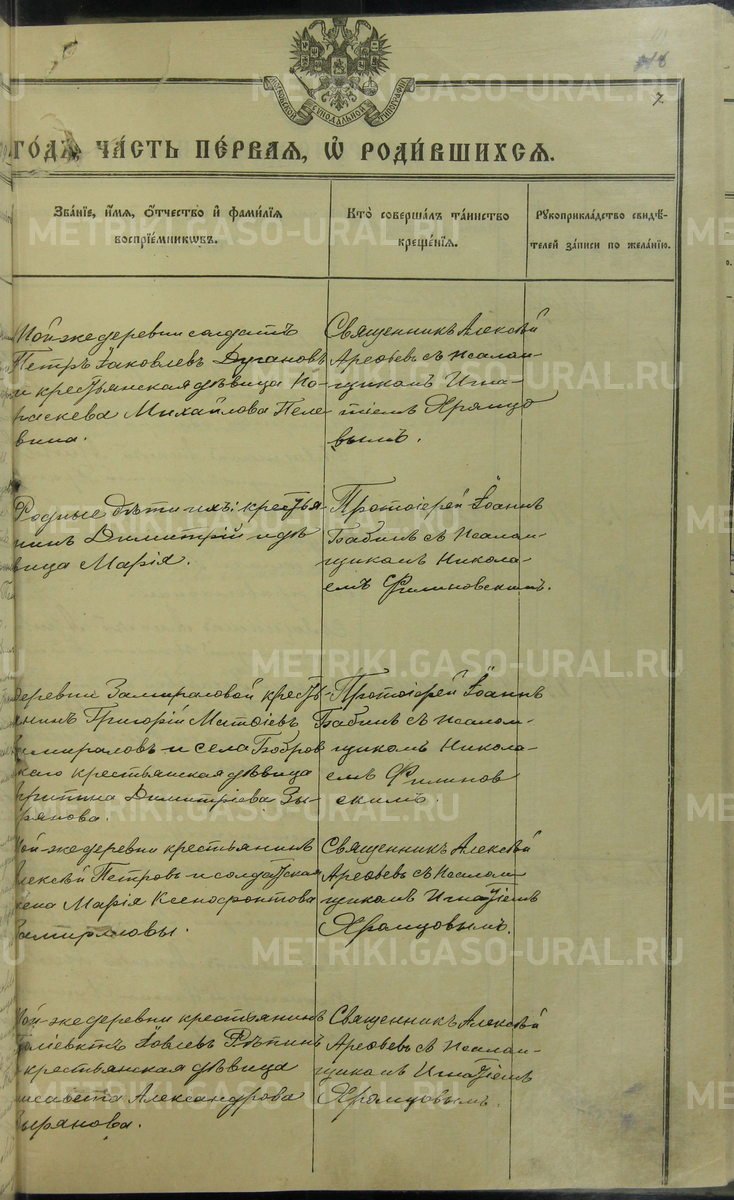 118
7.
МОСКОВСКОЙ СѴНОДАЛЬНОЙ ТИПОГРАФІИ
ГОДЪ, ЧА́СТЬ ПЕ́РВАЯ, Ѡ҆ РОДИ́ВШИХСЯ.
Зва́нїе, и҆́мѧ, ѻ҆́тчество и҆ фами́лїѧ
воспрїе́мникѡвъ.
Кто̀ соверша́лъ та́инство
креще́нїѧ.
Рꙋкоприкла́дство свидѣ́-
телей за́писи по жела́нїю.
Той-же деревни солдатъ
Петръ Іаковлевъ Дугановъ
и крестьянская дѣвица Па-
раскева Михайлова Пеле-
вина.
Священникъ Алексѣй
Арефьевъ съ псалом-
щикомъ Игна-
тіемъ Хромцо
вымъ.
Родные дѣти ихъ: крестья-
нинъ Димитрій и дѣ
вица Марія.
Протоіерей Іоаннъ
Бабинъ съ псалом-
щикомъ Никола-
емъ Филиновскимъ.
деревни Замираловой кресть
янинъ Григорій Матѳіевъ
Замираловъ и села Бобров
скаго крестьянская дѣвица
Димитріева Зы-
рянова.
Протоіерей Іоаннъ
Бабинъ съ псалом-
щикомъ Никола-
емъ Филинов
скимъ.
Той-же деревни крестьянинъ
Алексѣй Петровъ и солдатская
жена Марія Ксенофонтова
Замираловы.
Священникъ Алексѣй
Арефьевъ съ псалом-
щикомъ Игнатіемъ
Хромцовымъ.
Той-же деревни крестьянинъ
Іовлевъ Рѣпинъ
и крестьянская дѣвица
Елисавета Александрова
Зырянова.
Священникъ Алексѣй
Арефьевъ съ псалом-
щикомъ Игнатіемъ
Хромцовымъ.
METRIKI.GASO-URAL.RU